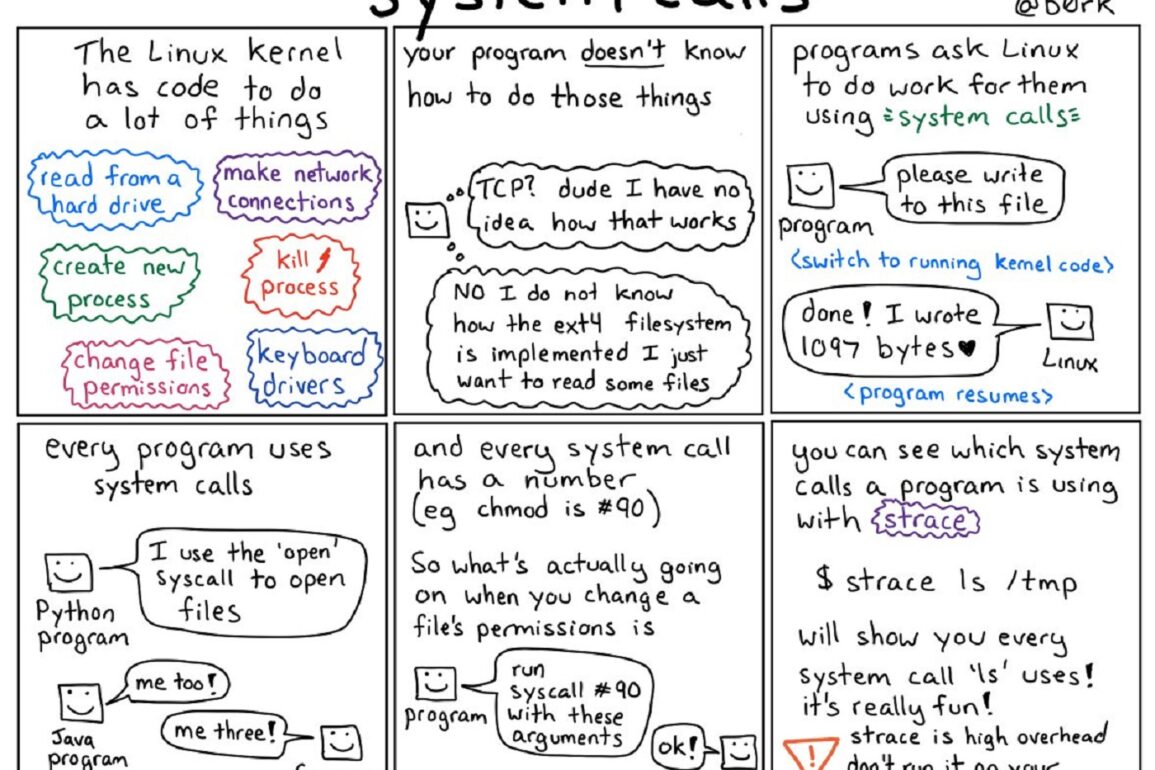 system calls
@b0rk
The Linux kernel
has code to do
a lot of things
read from a
hard drive
make network
connections
create new
process
kill
process
change file
permissions
keyboard
drivers
your program doesn't know
how to do those things
TCP? dude I have no
idea how that works
NO I do not know
how the ext4 filesystem
is implemented I just
want to read some files
programs ask Linux
to do work for them
using system calls
please write
to this file
program
<switch to running kernel code>
done! I wrote
1097 bytes♥
Linux
<program resumes>
every program uses
system calls
I use the 'open'
syscall to open
files
Python
program
me too!
Java
program
me three!
and every system call
has a number
(eg chmod is #90)
So what's actually going
on when you change a
file's permissions is
run
syscall #90
with these
arguments
program
ok!
you can see which system
calls a program is using
with strace
$ strace ls /tmp
will show you every
system call 'ls' uses!
it's really fun!
strace is high overhead
don't run it on your